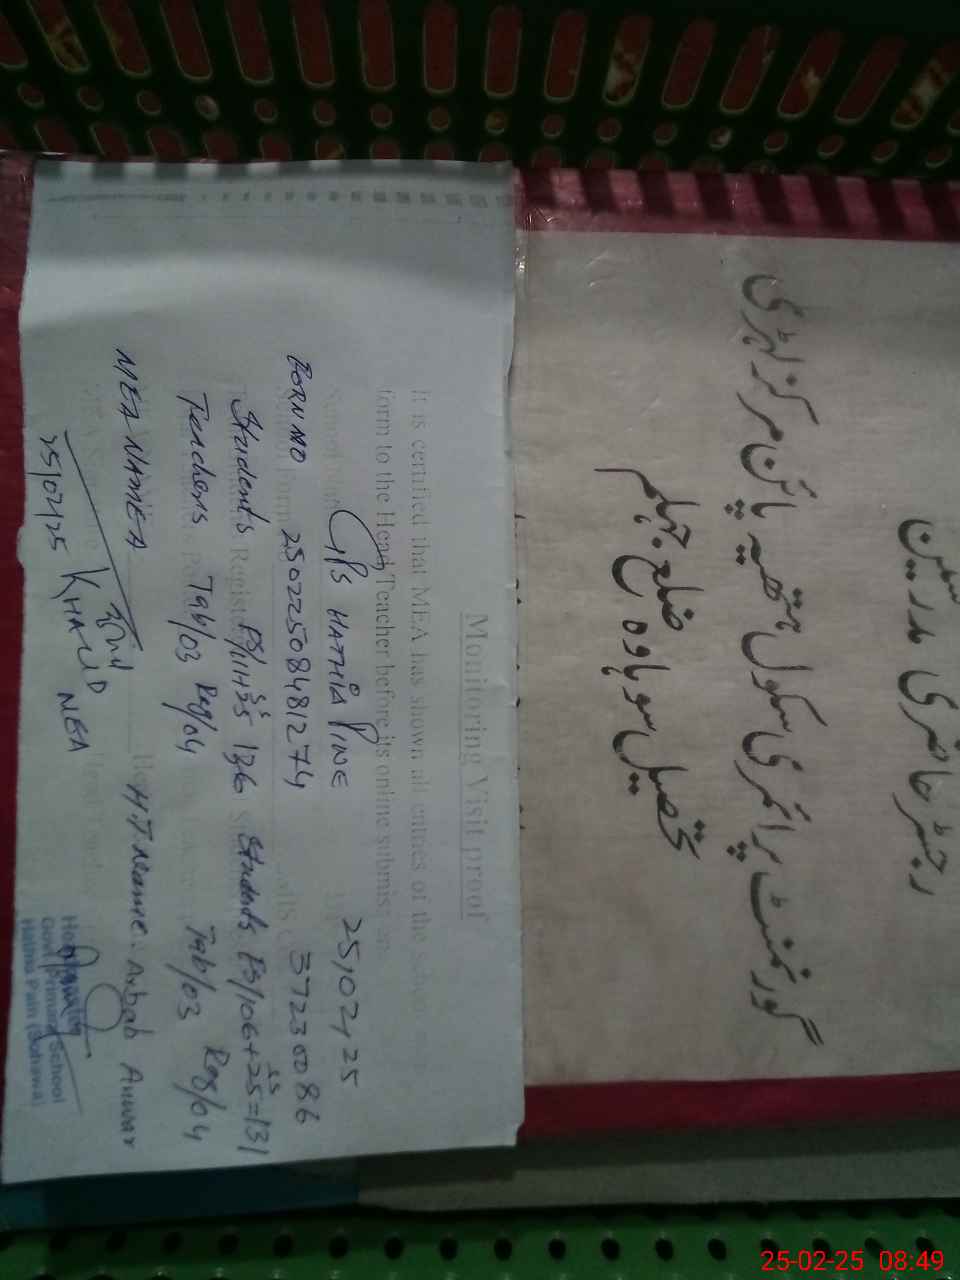 رجسٹر حاضری مدرسین سٹاف
گورنمنٹ پرائمری سکول ہتھیہ پائن مرکز لہڑی
تحصیل سوہاوہ ضلع جہلم
Monitoring Visit proof
It is certified that MEA has shown all entries of the
form to the Head Teacher before its online submission
GPS HATHIA PINE 25,02,25
FORM NO 25022508481274 37230086
Students PS/111+25 136 Students PS/106+25=131
Teachers Tab/03 Reg/04 Tab/03 Reg/04
MEA NAME H.T name. Arbab Anwar
KHALID MEA
25/02/25
Govt Primary School
Hathia Pain (Sohawa)
25-02-25 08:49